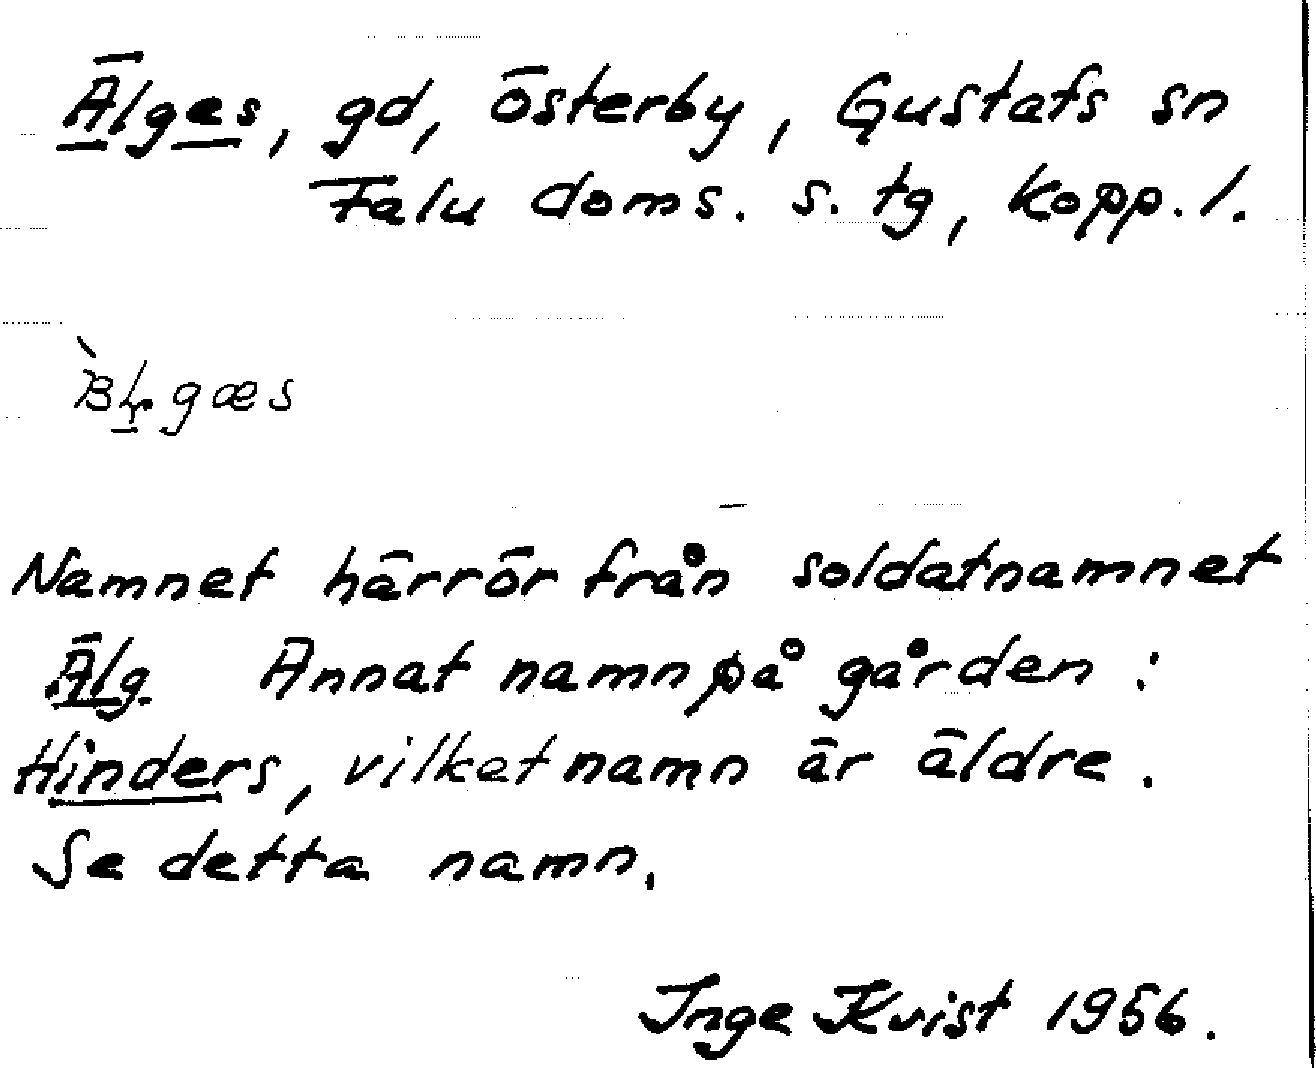 Älges, gd, Österby, Gustafs sn
Falu doms. s. tg, Kopp. l.
Namnet härrör från soldatnamnet
Älg Annat namn på gården:
Hinders, vilket namn är äldre.
Se detta namn.
Inge Kvist 1956.